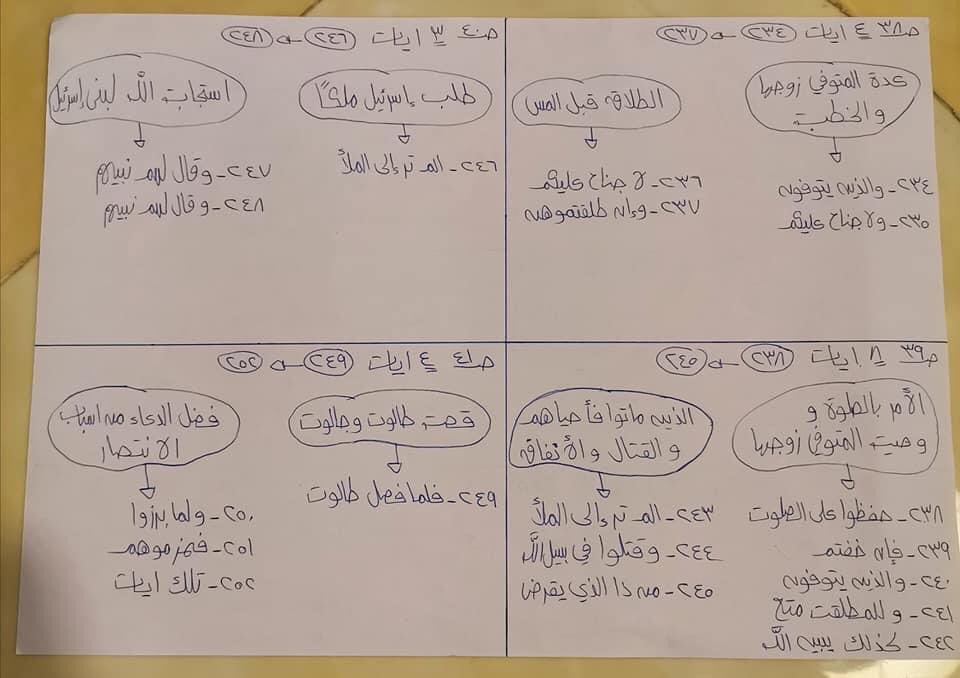 ص٣٨ ٤ ايات ٢٣٤ ← ٢٣٧
عدة المتوفي زوجها
والخطبة
٢٣٤- والذين يتوفون
٢٣٥- ولا جناح عليكم
الطلاق قبل المس
٢٣٦- لا جناح عليكم
٢٣٧- وإن طلقتموهن
ص٤٠ ٣ ايات ٢٤٦ ← ٢٤٨
طلب إسرئيل ملكاً
٢٤٦- الم تر إلى الملأ
استجابة اللّه لبني إسرئيل
٢٤٧- وقال لهم نبيهم
٢٤٨- وقال لهم نبيهم
ص٣٩ ٨ ايات ٢٣٨ ← ٢٤٥
الأمر بالصلوة و
وصية المتوفي زوجها
٢٣٨- حفظوا على الصلوت
٢٣٩- فإن خفتم
٢٤٠- والذين يتوفون
٢٤١- وللمطلقت متع
٢٤٢- كذلك يبين اللّه
الذين ماتوا فأحياهم
والقتال والأنفاق
٢٤٣- الم تر إلى الملأ
٢٤٤- وقتلوا في سبيل اللّه
٢٤٥- من ذا الذي يقرض
ص٤١ ٤ ايات ٢٤٩ ← ٢٥٢
قصة طالوت وجالوت
٢٤٩- فلما فصل طالوت
فضل الدعاء من اسباب
الانتصار
٢٥٠- ولما برزوا
٢٥١- فهزموهم
٢٥٢- تلك ايات